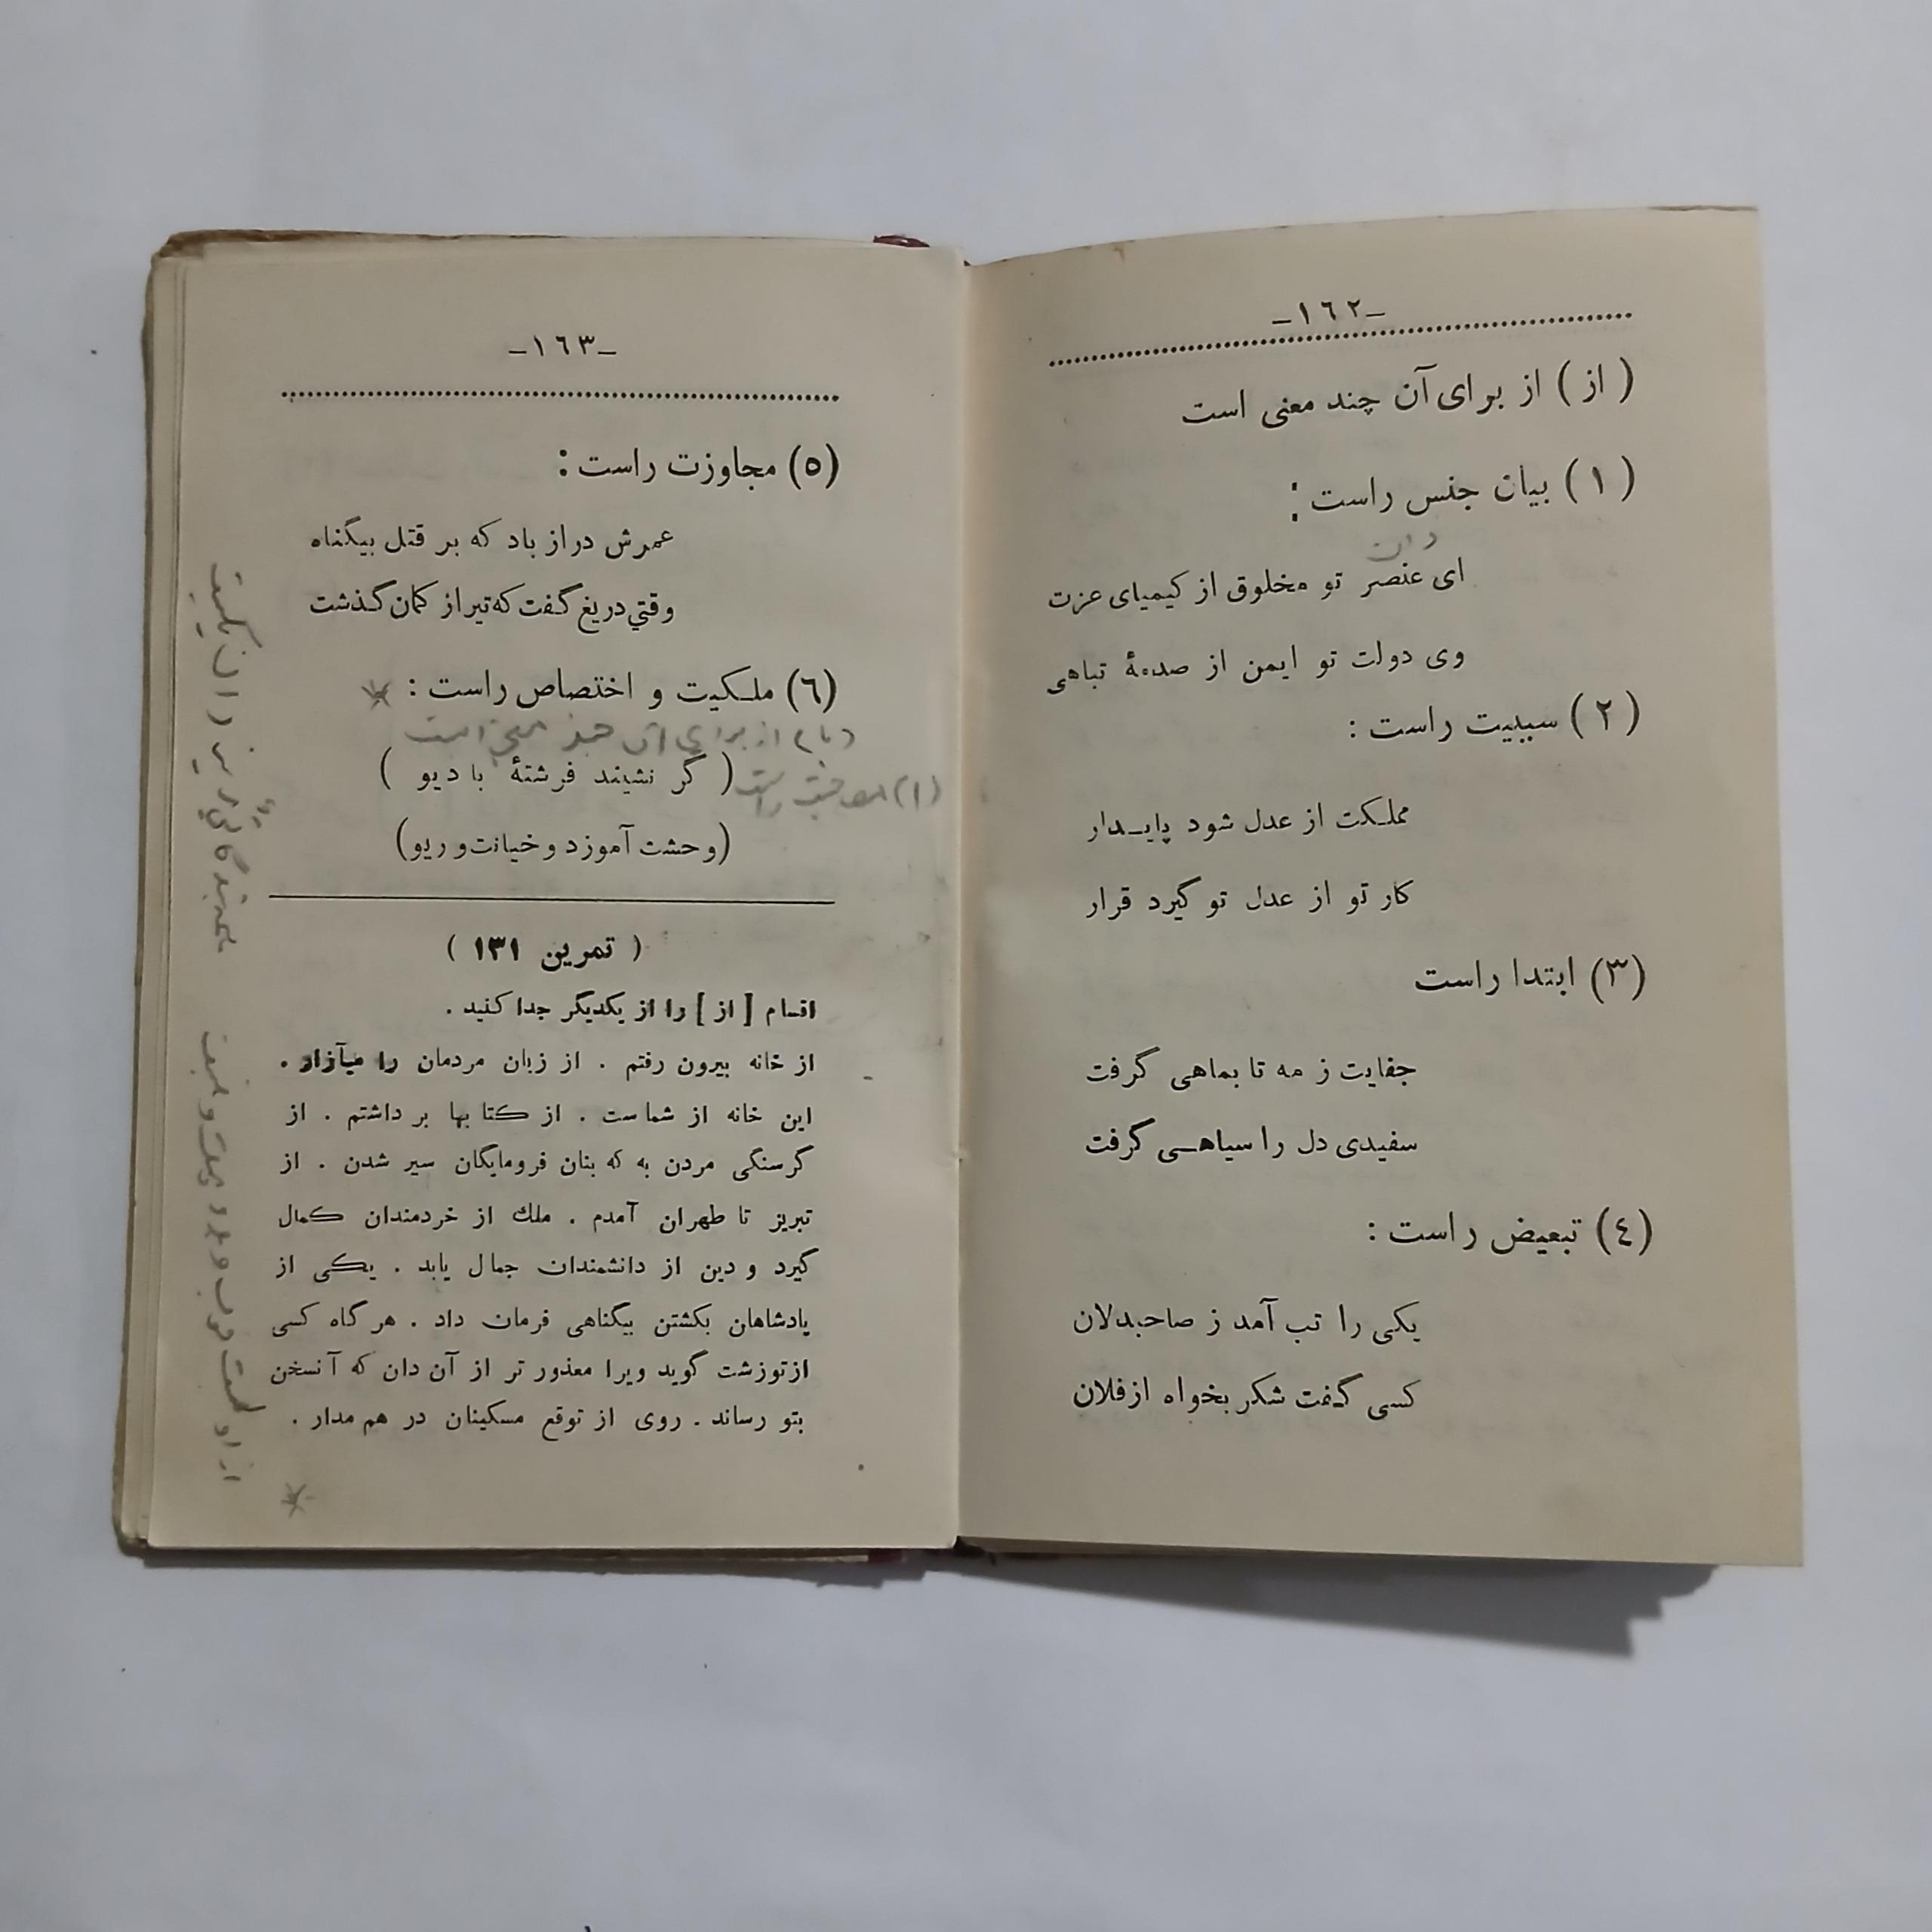 -١٦٢-
( از ) از برای آن چند معنی است
( ١ ) بیان جنس راست :
ای عنصر تو مخلوق از کیمیای عزت
وی دولت تو ایمن از صدمهٔ تباهی
( ٢ ) سببیت راست :
مملکت از عدل شود پایدار
کار تو از عدل تو گیرد قرار
(٣) ابتدا راست
جفایت ز مه تا بماهی گرفت
سفیدی دل را سیاهی گرفت
(٤) تبعیض راست :
یکی را تب آمد ز صاحبدلان
کسی گفت شکر بخواه از فلان
-١٦٣-
(٥) مجاوزت راست :
عمرش دراز باد که بر قتل بیگناه
وقتی دریغ گفت که تیر از کمان گذشت
(٦) ملکیت و اختصاص راست :
(با) از برای آن چند معنی است
(١) مصاحبت راست
( گر نشیند فرشتهٔ با دیو )
(وحشت آموزد و خیانت و ریو)
( تمرین ١٣١ )
اقسام [ از ] را از یکدیگر جدا کنید .
از خانه بیرون رفتم . از زبان مردمان را میآزار .
این خانه از شماست . از کتابها برداشتم . از
گرسنگی مردن به که بنان فرومایگان سیر شدن . از
تبریز تا طهران آمدم . ملك از خردمندان کمال
گیرد و دین از دانشمندان جمال یابد . یکی از
پادشاهان بکشتن بیگناهی فرمان داد . هرگاه کسی
از تو زشت گوید ویرا معذور تر از آن دان که آنسخن
بتو رساند . روی از توقع مسکینان در هم مدار .